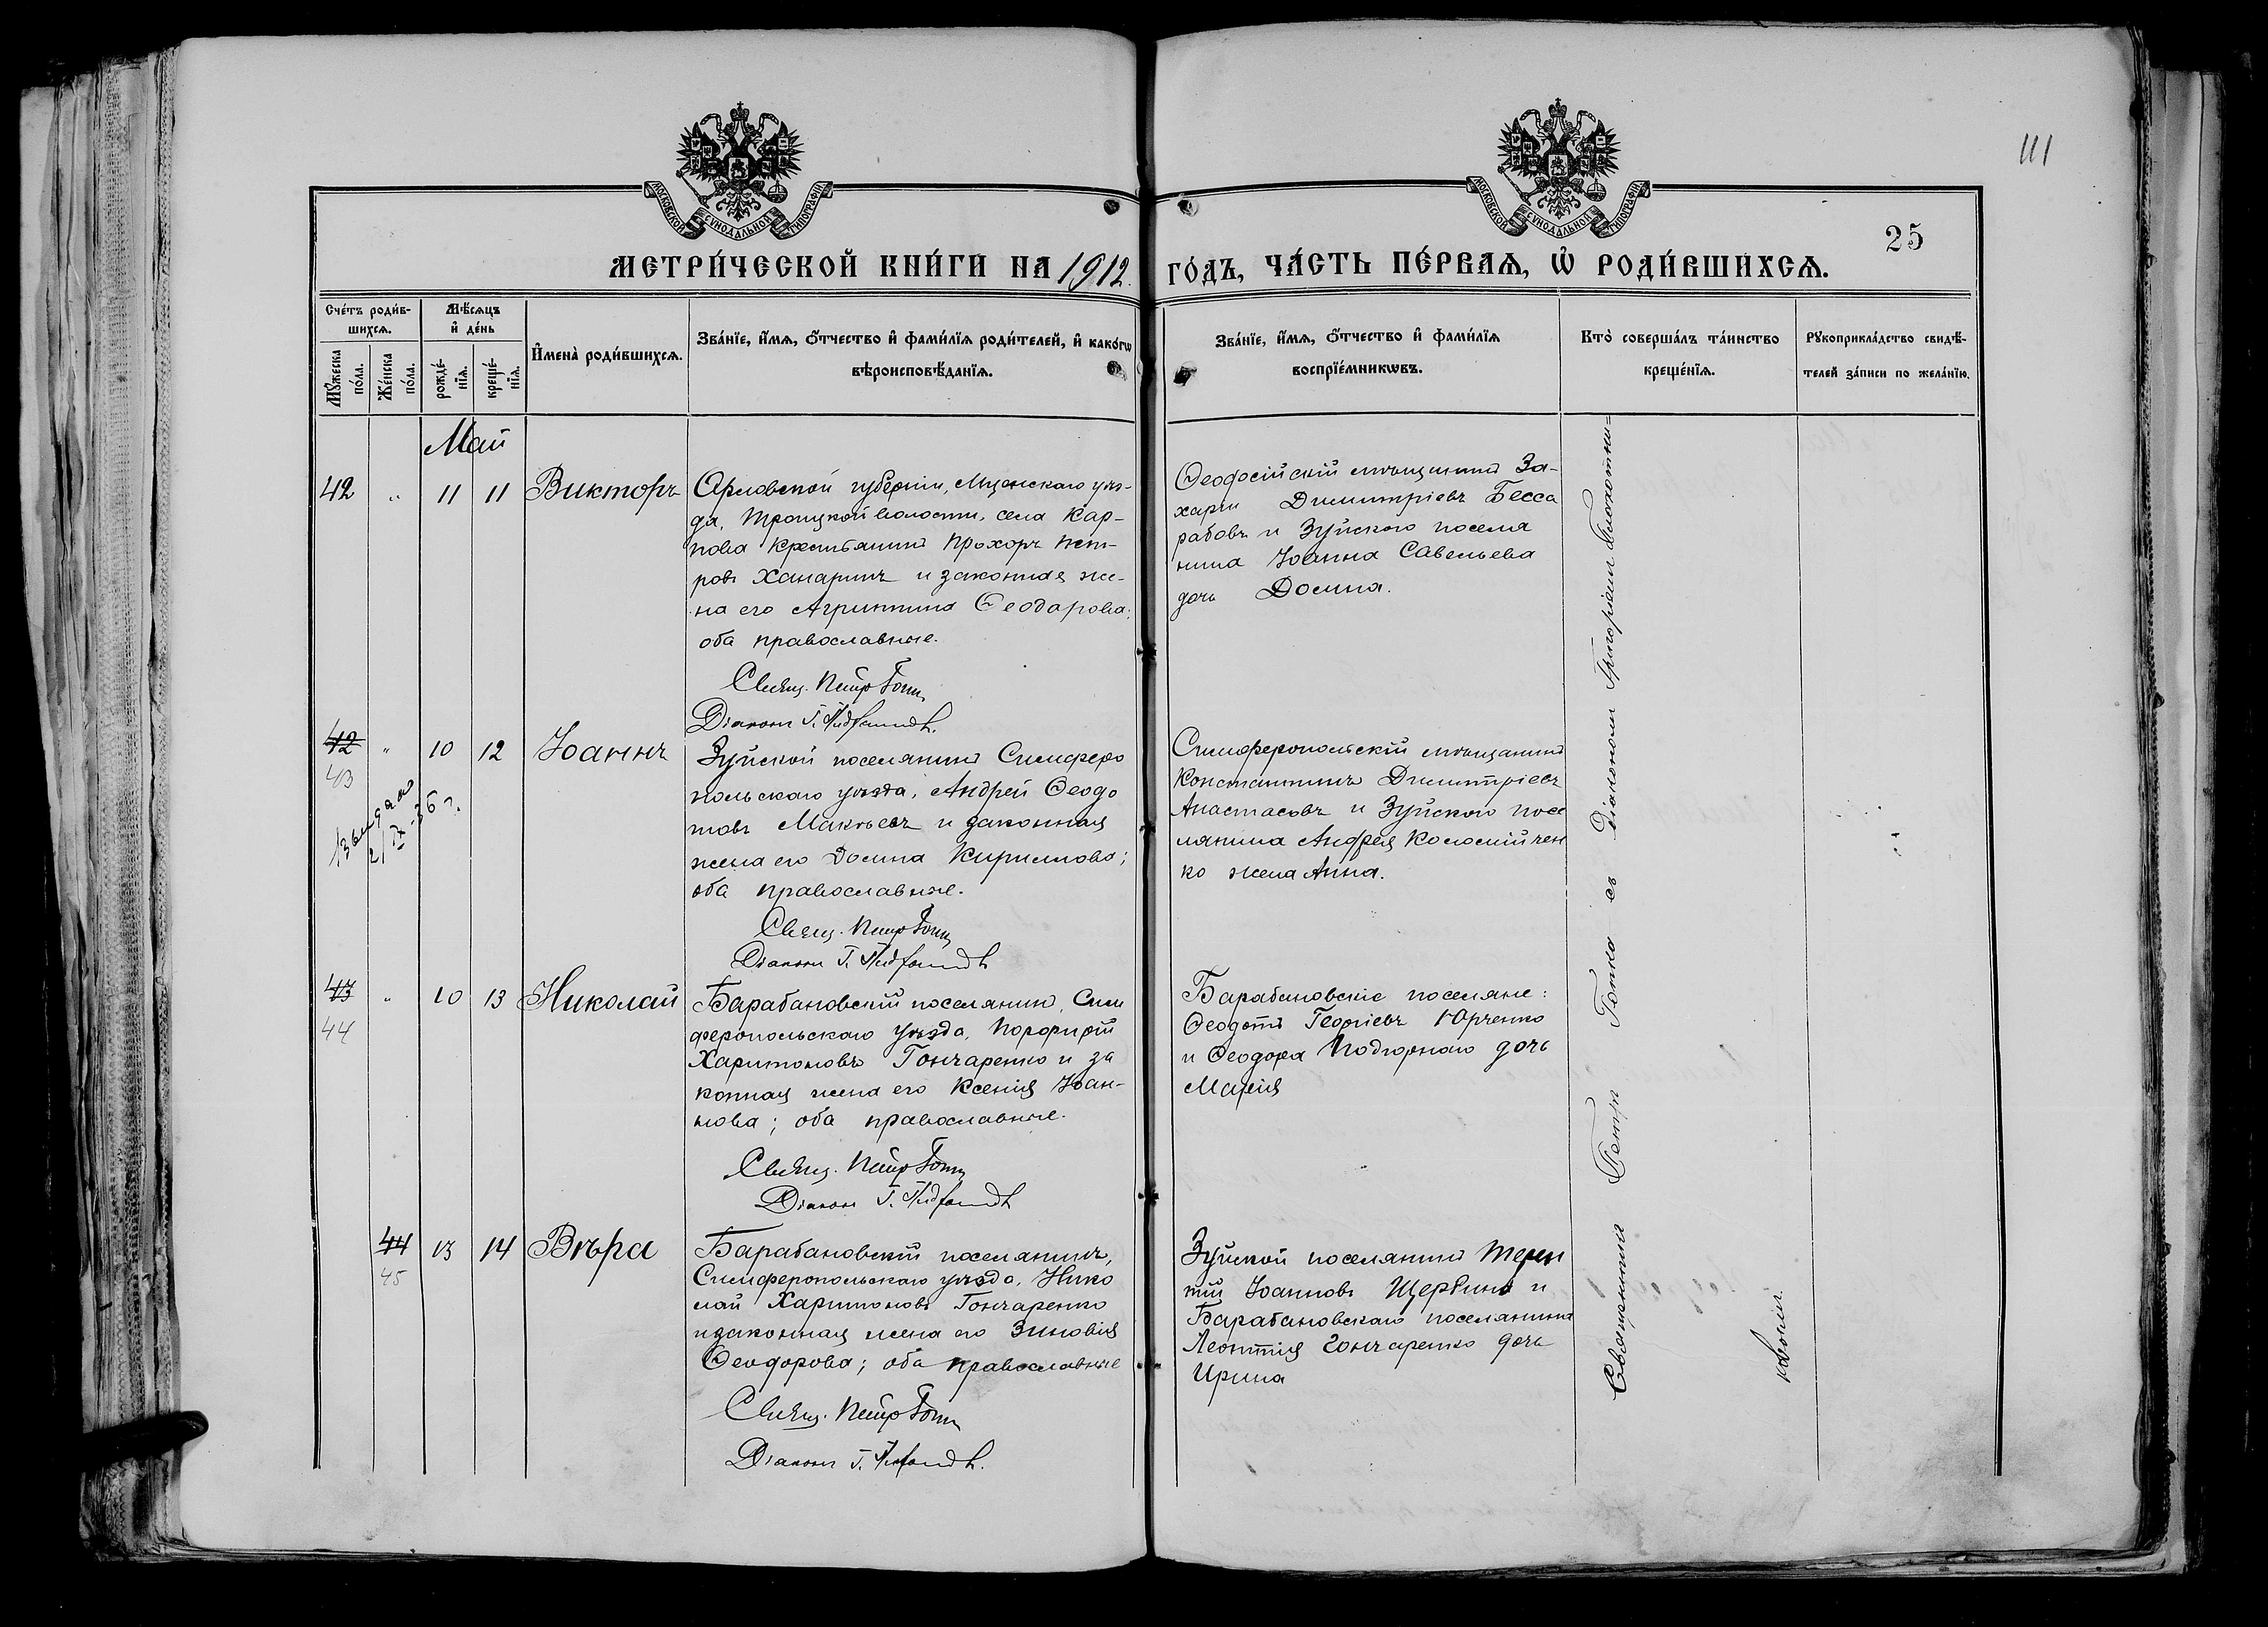 111
МОСКОВСКОЙ СѴНОДАЛЬНОЙ ТИПОГРАФІИ
МОСКОВСКОЙ СѴНОДАЛЬНОЙ ТИПОГРАФІИ
25
МЕТРИ́ЧЕСКОЙ КНИ́ГИ НА 1912. ГО́ДЪ, ЧА́СТЬ ПЕ́РВАѦ, Ѡ҆ РОДИ́ВШИХСѦ.
Сче́тъ роди́в-
шихсѧ.
Мꙋ́жеска
по́ла.
Же́нска
по́ла.
Мѣ́сѧцъ
и҆ де́нь
рожде́-
нїѧ.
креще́-
нїѧ.
И҆мена̀ роди́вшихсѧ.
Зва́нїе, и҆́мѧ, ѻ҆́тчество и҆ фами́лїѧ роди́телей, и҆ како́гѡ
вѣроисповѣ́данїѧ.
Зва́нїе, и҆́мѧ, ѻ҆́тчество и҆ фами́лїѧ
воспрїе́мникѡвъ.
Кто̀ соверша́лъ та́инство
креще́нїѧ.
Рꙋкоприкла́дство свидѣ́-
телей за́писи по жела́нїю.
Май
42 " 11 11 Викторъ
Орловской губерніи, Мценскаго уѣз-
да, Троицкой волости, села Кар-
пова крестьянинъ Прохоръ Пет-
ровъ Ханаринъ и законная же-
на его Агриппина Ѳеодорова;
оба православные.
Свящ. Петръ
Діаконъ Г.
Ѳеодосійскій мѣщанинъ За-
харій Димитріевъ Бесса
рабовъ и Зуйского поселя
нина Іоанна Савельева
дочь Домна.
42 " 10 12 Іоаннъ
43
Выдано
2/IX-36 г.
Зуйской поселянинъ Симферо
польскаго уѣзда, Андрей Ѳеодо
товъ и законная
жена его Домна Кириллова;
оба православные.
Свящ. Петръ
Діаконъ Г.
Симферопольскій мѣщанинъ
Константинъ Димитріевъ
Анастасовъ и Зуйского посе
лянина Андрея Коломійчен
ко жена Анна.
43 " 10 13 Николай
44
Барабановскій поселянинъ, Сим
феропольскаго уѣзда, Порфирій
Харитоновъ Гончаренко и за
конная жена его Ксенія Іоан-
нова; оба православные.
Свящ. Петръ
Діаконъ Г.
Барабановскіе поселяне:
Ѳеодотъ Георгіевъ Юрченко
и Ѳеодора Подгорнаго дочь
Марія
44 13 14 Вѣра
45
Барабановскій поселянинъ,
Симферопольскаго уѣзда, Нико
лай Харитоновъ Гончаренко
и законная жена его Зиновія
Ѳеодорова; оба православные
Свящ. Петръ
Діаконъ Г.
Зуйской поселянинъ Терен
тій Іоанновъ Щербина и
Барабановскаго поселянина
Леонтія Гончаренко дочь
Ирина
Священникъ Петръ съ Діакономъ Григоріемъ